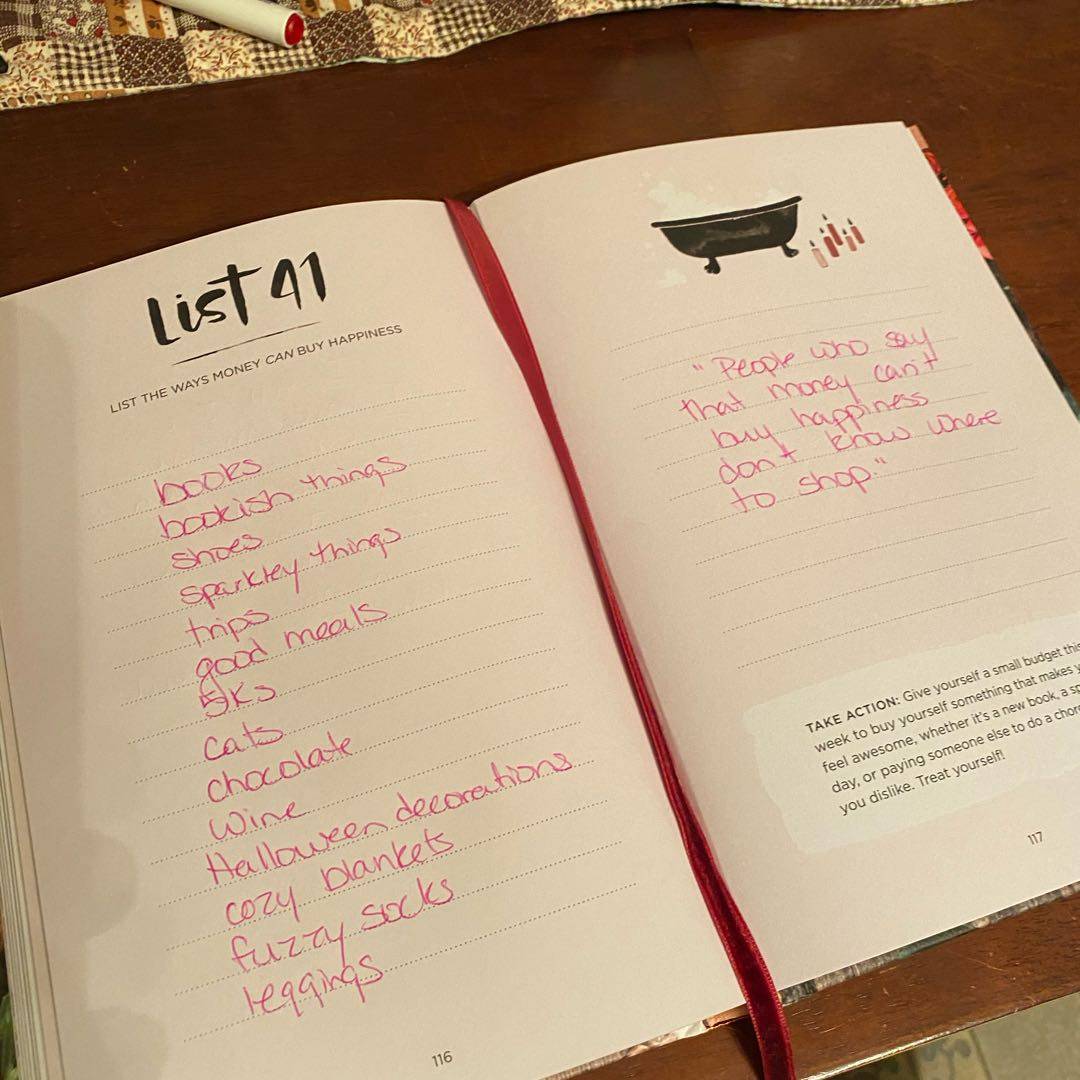 List 41
LIST THE WAYS MONEY CAN BUY HAPPINESS
books
bookish things
shoes
sparkley things
trips
good meals
5Ks
cats
chocolate
wine
Halloween decorations
cozy blankets
fuzzy socks
leggings
116
"People who say
that money can't
buy happiness
don't know where
to shop"
TAKE ACTION: Give yourself a small budget this
week to buy yourself something that makes
feel awesome, whether it's a new book, a
day, or paying someone else to do a
you dislike. Treat yourself!
117